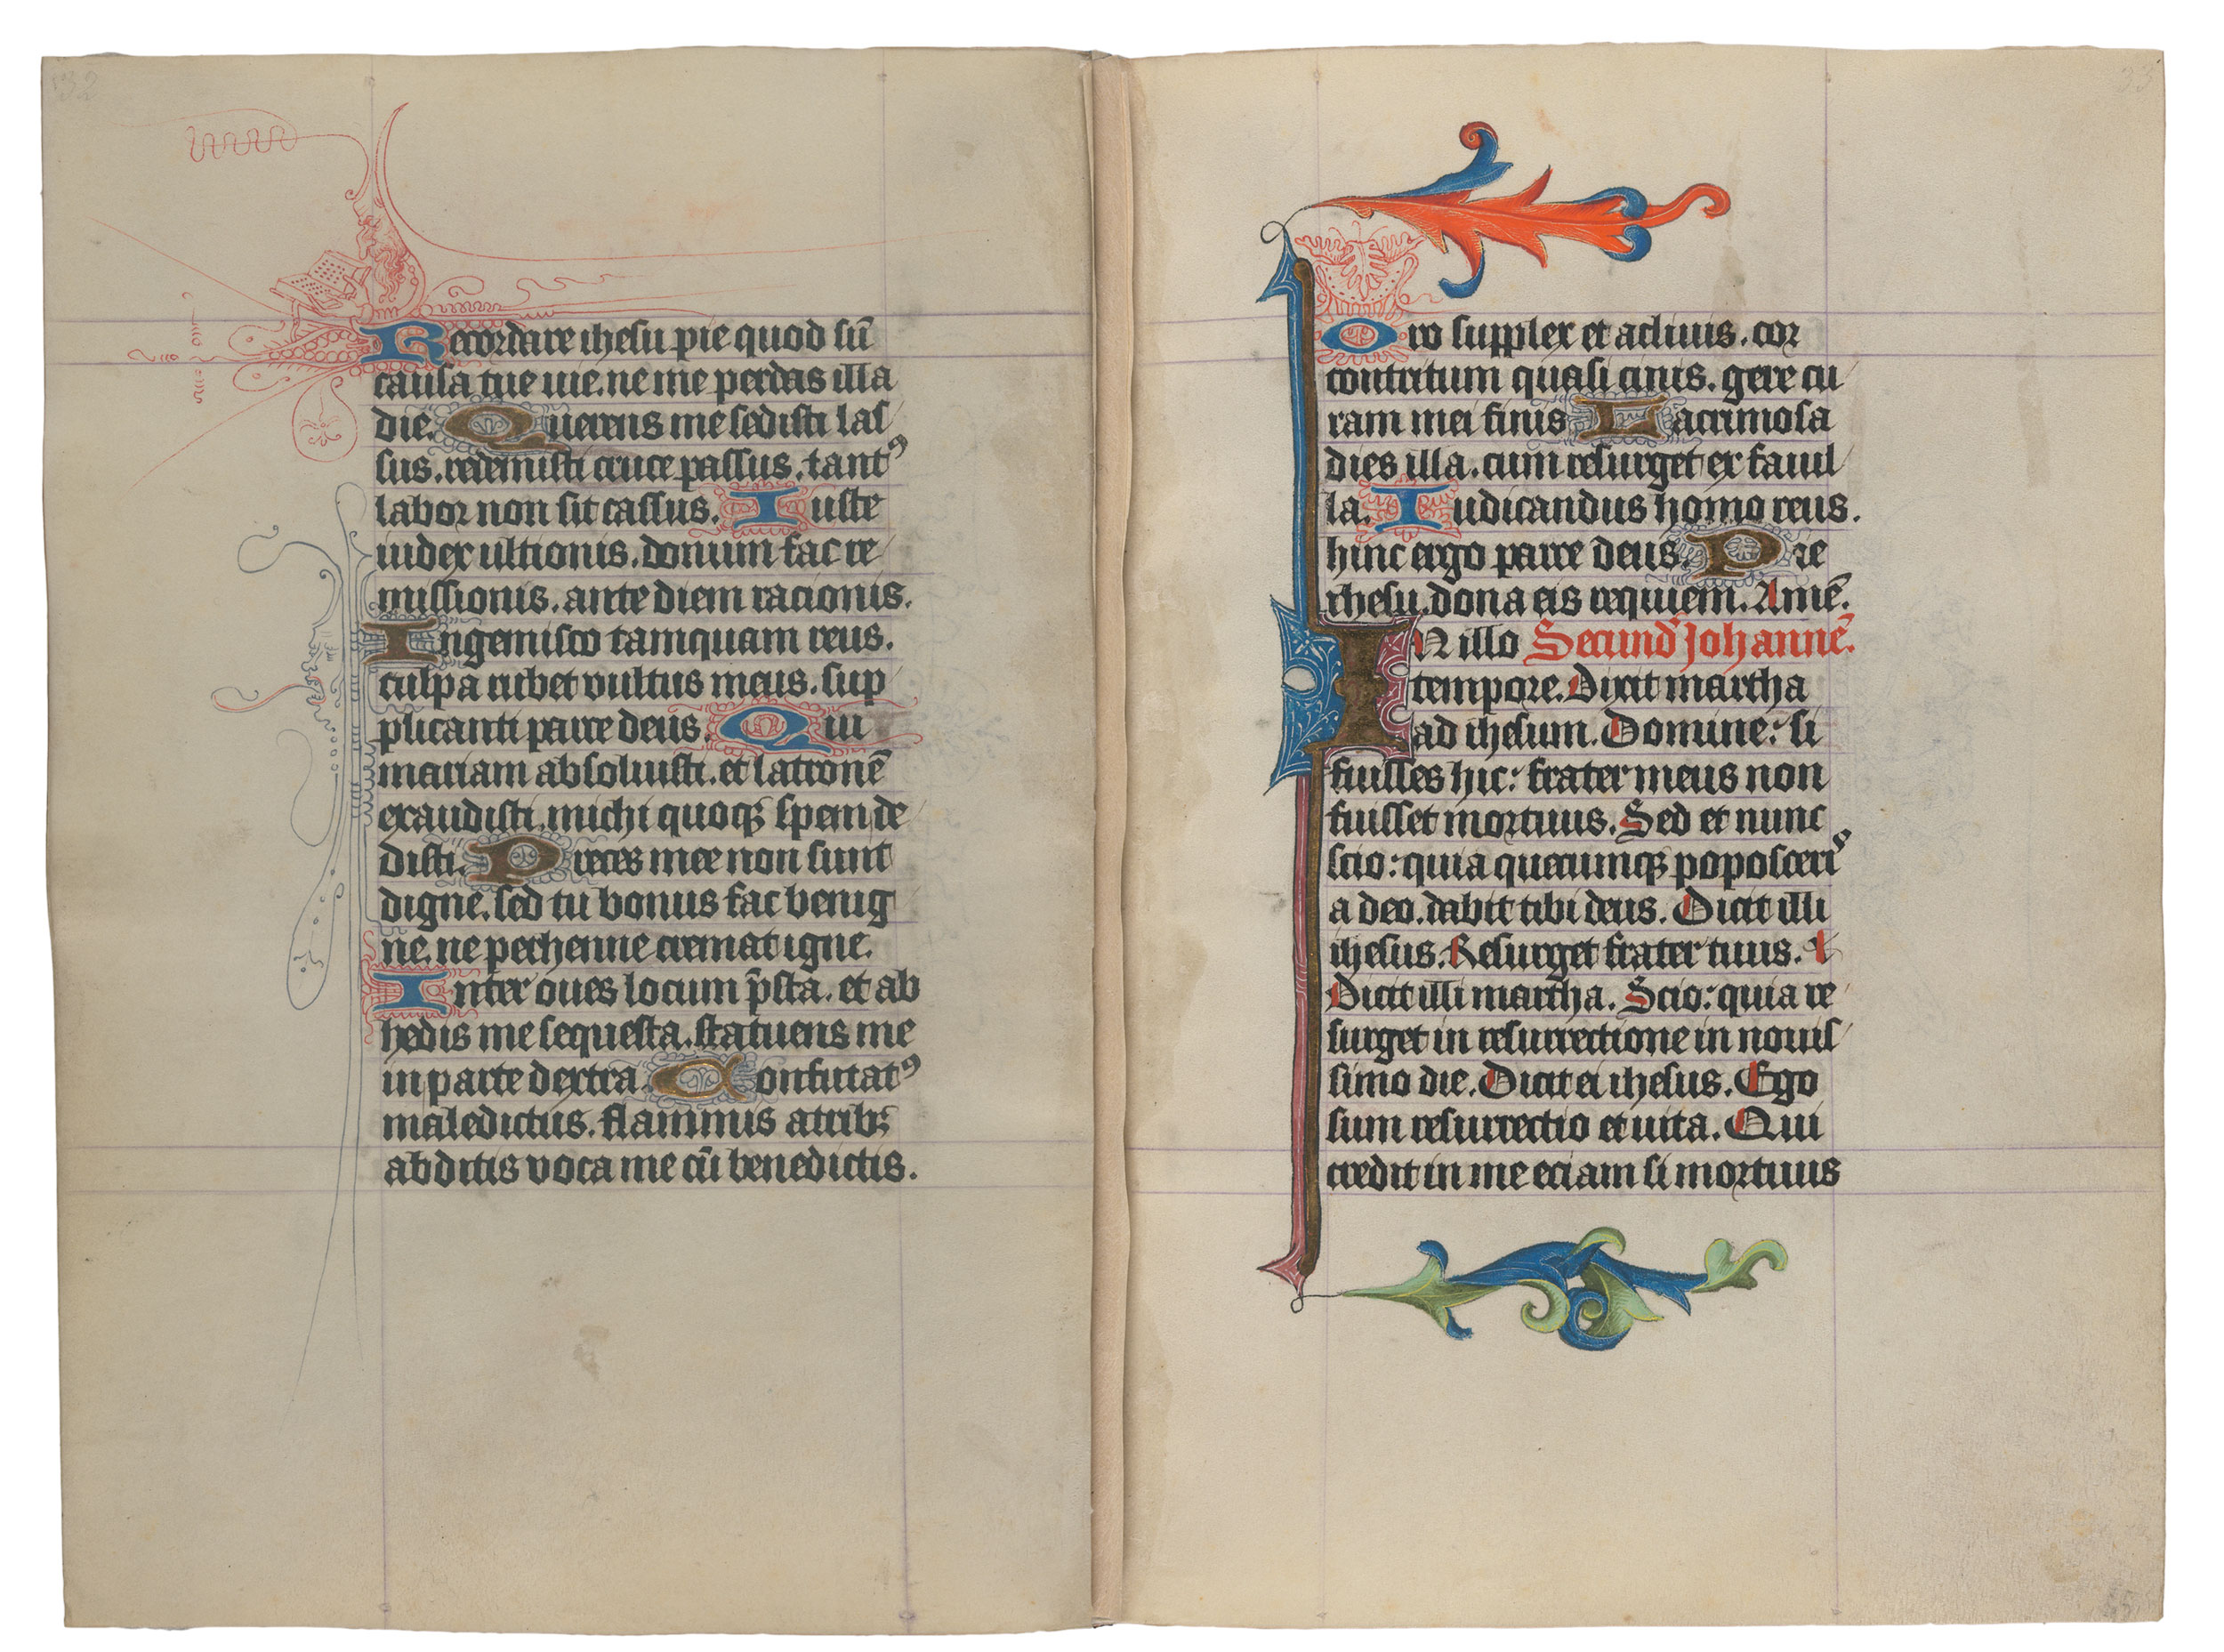 32
Recordare ihesu pie quod sū
causa tue uie. ne me perdas illa
die. Querens me sedisti las
sus. redemisti cruce passus. tantꝰ
labor non sit cassus. Iuste
iudex ultionis. donum fac re
missionis. ante diem racionis.
Ingemisco tamquam reus.
culpa rubet vultus meus. sup
plicanti parce deus. Qui
mariam absoluisti. et latronē
exaudisti. michi quoqꝫ spem de
disti. Preces mee non sunt
digne. sed tu bonus fac benig
ne. ne perhenne cremat igne.
Inter oues locum p̄sta. et ab
hedis me sequesta. statuens me
in parte dextra. Confutatꝰ
maledictus. flammis acribꝫ
abditis voca me cū benedictis.
33
Oro supplex et acliuis. cor
contritum quasi cinis. gere cu
ram mei finis Lacrimosa
dies illa. cum resurget ex fauil
la. Iudicandus homo reus.
hinc ergo parce deus. Pie
ihesu. dona eis requiem. Amē.
IN illo Secund' Johannē.
tempore. Dixit martha
ad ihesum. Domine: si
fuisses hic: frater meus non
fuisset mortuus. Sed et nunc
scio: quia quecumqꝫ poposceris
a deo. dabit tibi deus. Dicit illi
ihesus. Resurget frater tuus.
Dicit illi martha. Scio: quia re
surget in resurrectione in nouis
simo die. Dicit ei ihesus. Ego
sum resurrectio et uita. Qui
credit in me eciam si mortuus